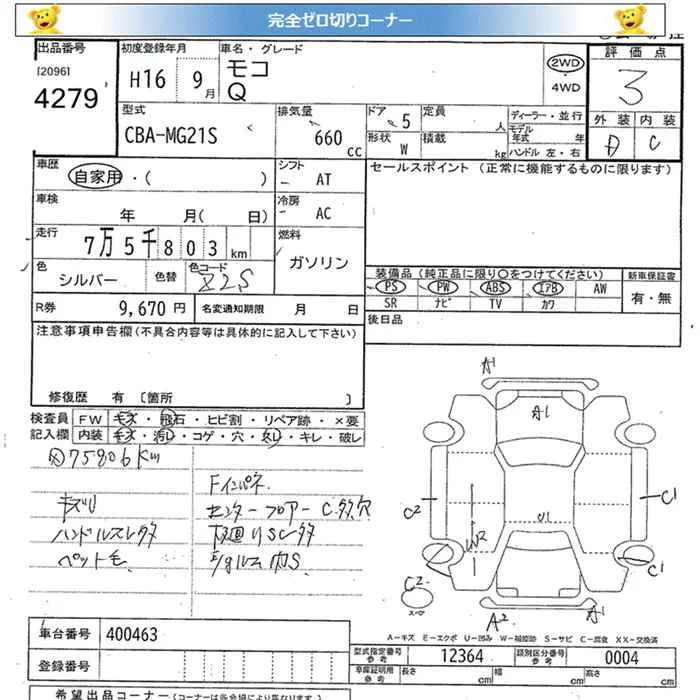 完全ゼロ切りコーナー
出品番号
[2096]
4279
初度登録年月
H16 9月
車名・グレード
モコ
Q
2WD
・
4WD
評価点
3
外装 内装
D C
型式
CBA-MG21S
排気量
660
cc
ドア 5
形状 W
定員
人
積載
kg
ディーラー・並行
モデル年式 年
ハンドル 左・右
車歴
自家用・( )
シフト
AT
セールスポイント(正常に機能するものに限ります)
車検
年 月( 日)
冷房
AC
走行
7万5千803km
燃料
ガソリン
色
シルバー
色替
色コード
Z2S
装備品(純正品に限り○をつけてください)
PS PW ABS エアB AW
SR ナビ TV カワ
新車保証書
有・無
R券
9,670円
名変通知期限 月 日
後日品
注意事項申告欄(不具合内容等は具体的に記入して下さい)
修復歴 有 〔箇所 〕
検査員
記入欄
FW キズ・飛石・ヒビ割・リペア跡・×要
内装 キズ・汚レ・コゲ・穴・欠レ・キレ・破レ
75806km
キズリ
ハンドルスレタタ
ペット毛
Fインパネ
センターフロアーC多穴
下廻りSC多タ
E/gルム内S
A1
A1
C2
W2
U1
C1
C1
C2
スペア
A2
A1
A-キズ E-エクボ U-凹み W-補修跡 S-サビ C-腐食 XX-交換済
車台番号
400463
登録番号
型式指定番号
参考
12364
類別区分番号
参考
0004
車庫証明用
参考
長さ
幅
高さ
希望出品コーナー